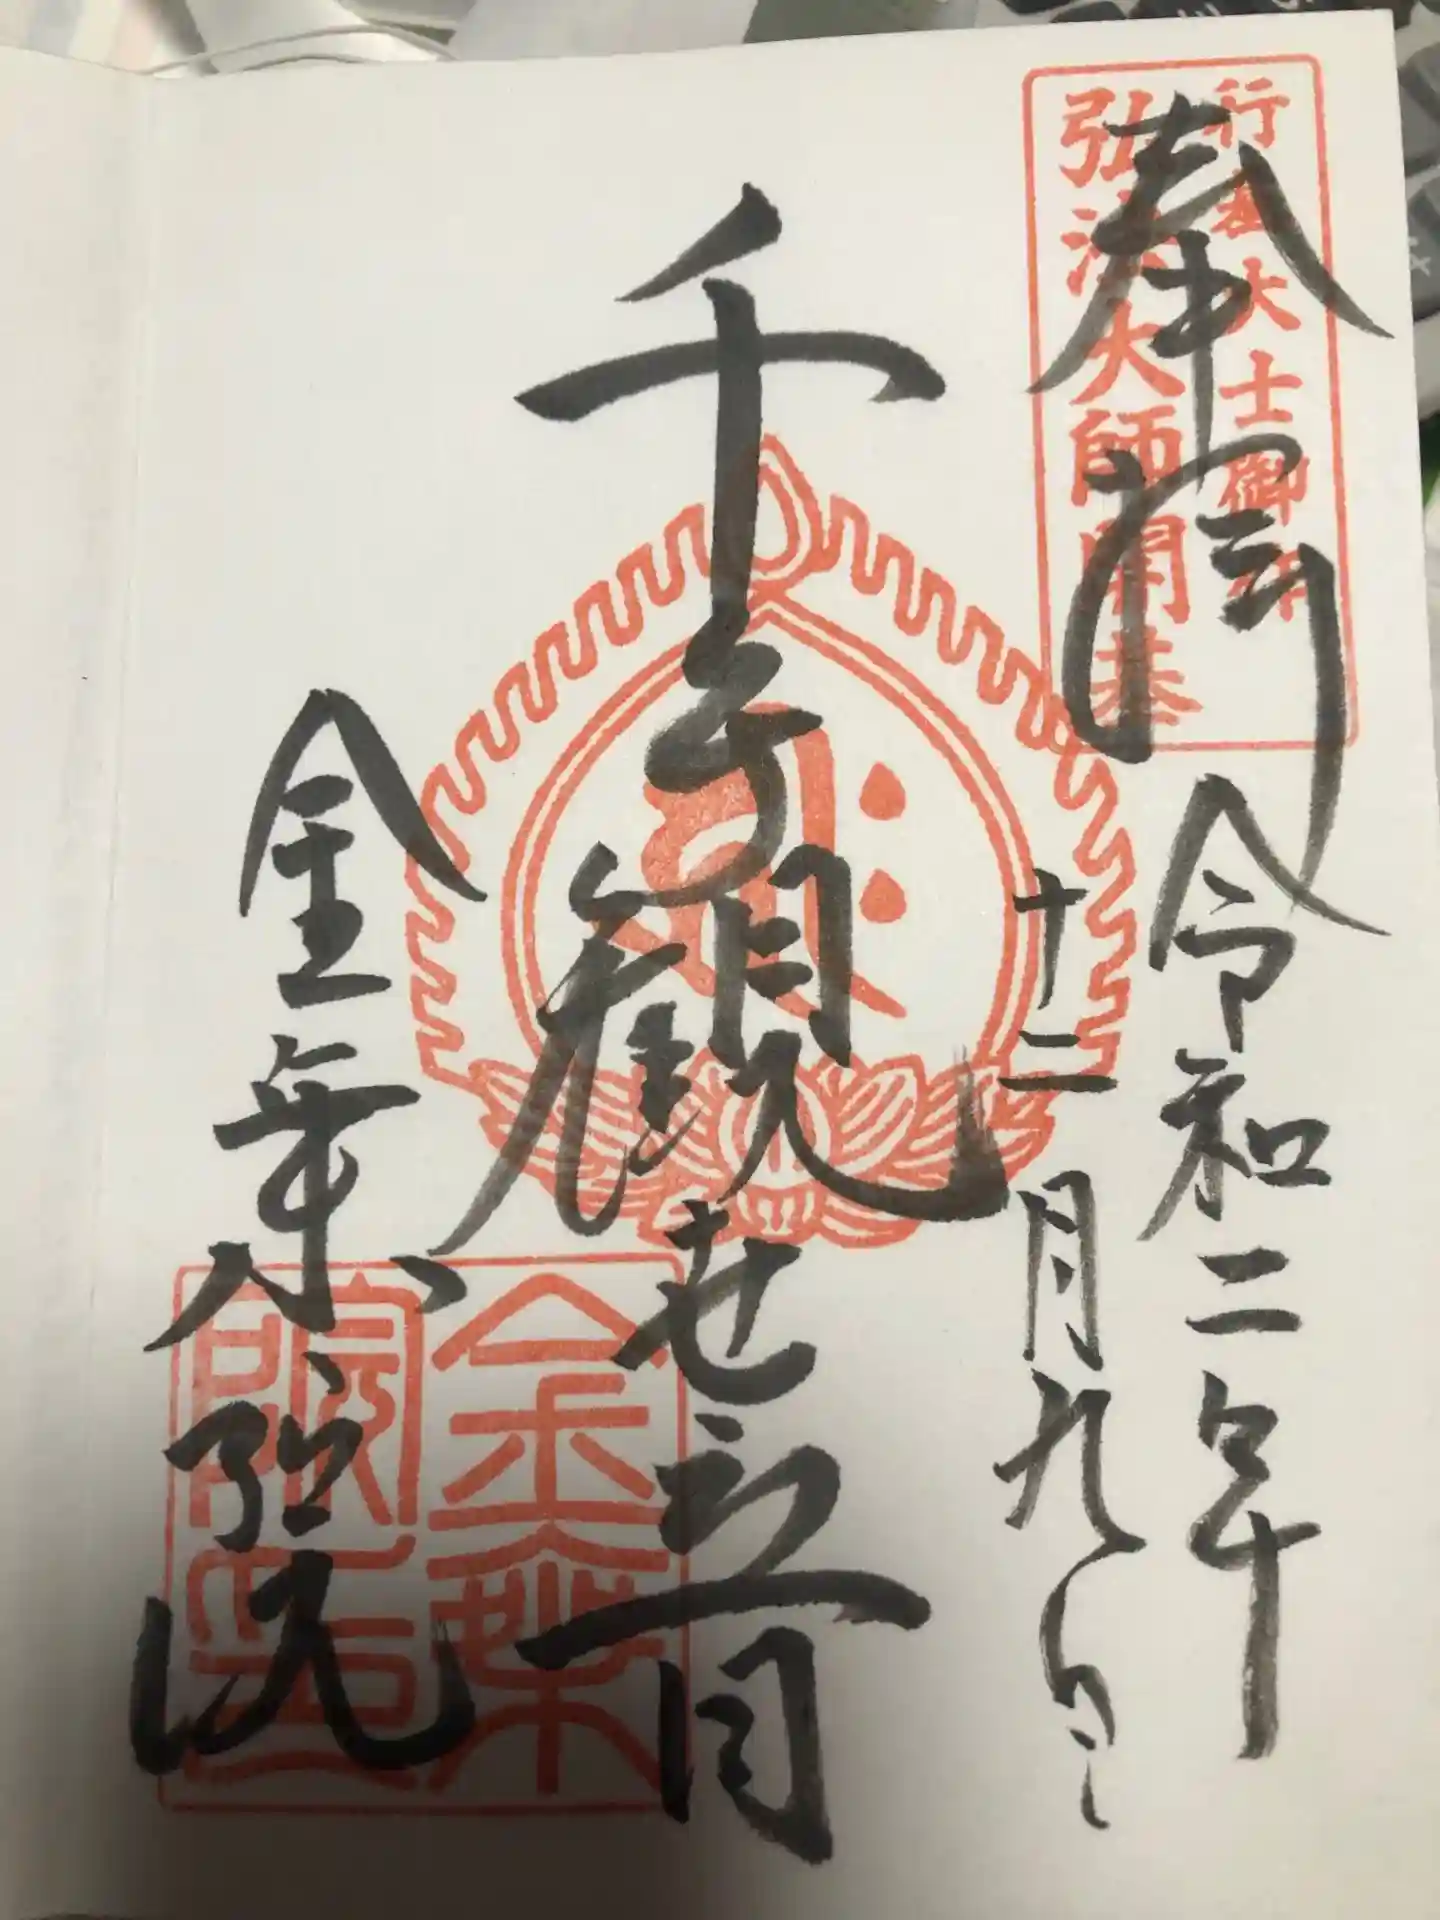 行基大士御作
弘法大師開基
奉拝
令和二年
十二月九日
千手観世音
金乗院
金乗
院印